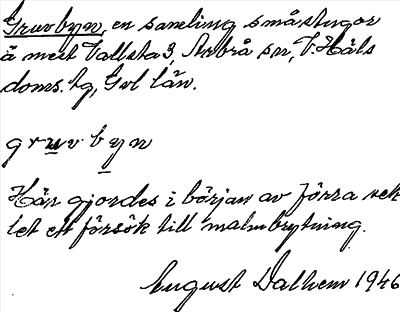 Gruvbyn, en samling småstugor
å mest Vallsta 3, Arbrå sn, V. Häls
doms. tg, Gvl län.
gruvbyn
Här gjordes i början av förra sek
let ett försök till malmbrytning.
August Dalhem 1946